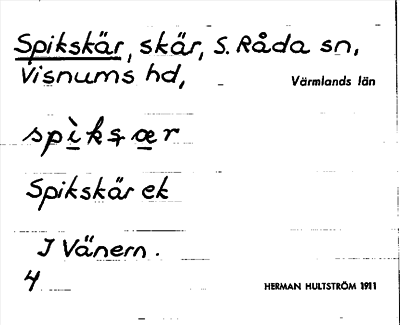 Spikskär, skär, S. Råda sn,
Visnums hd,
Värmlands län
Spikskär ek
I Vänern.
4
HERMAN HULTSTRÖM 1911